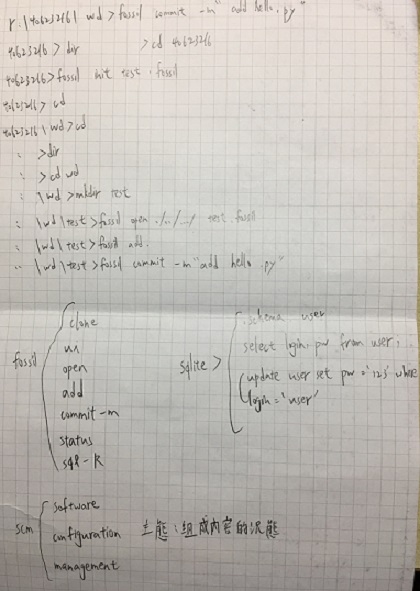 40623216\ wd > fossil commit -m "add hello.py"
40623216 > dir > cd 40623216
40623216 > fossil init test.fossil
40623216 > cd
40623216 \ wd > cd
: > dir
: > cd wd
: \wd > mkdir test
: \wd \ test > fossil open ./../ test.fossil
: \wd \ test > fossil add.
: \wd \ test > fossil commit -m "add hello.py"
fossil
clone
open
add
commit -m
status
sqlite >
.schema user
select login, pw from user;
update user set pw = '123' where
login = 'user'
scm
software
configuration 主態：組成內容的
management